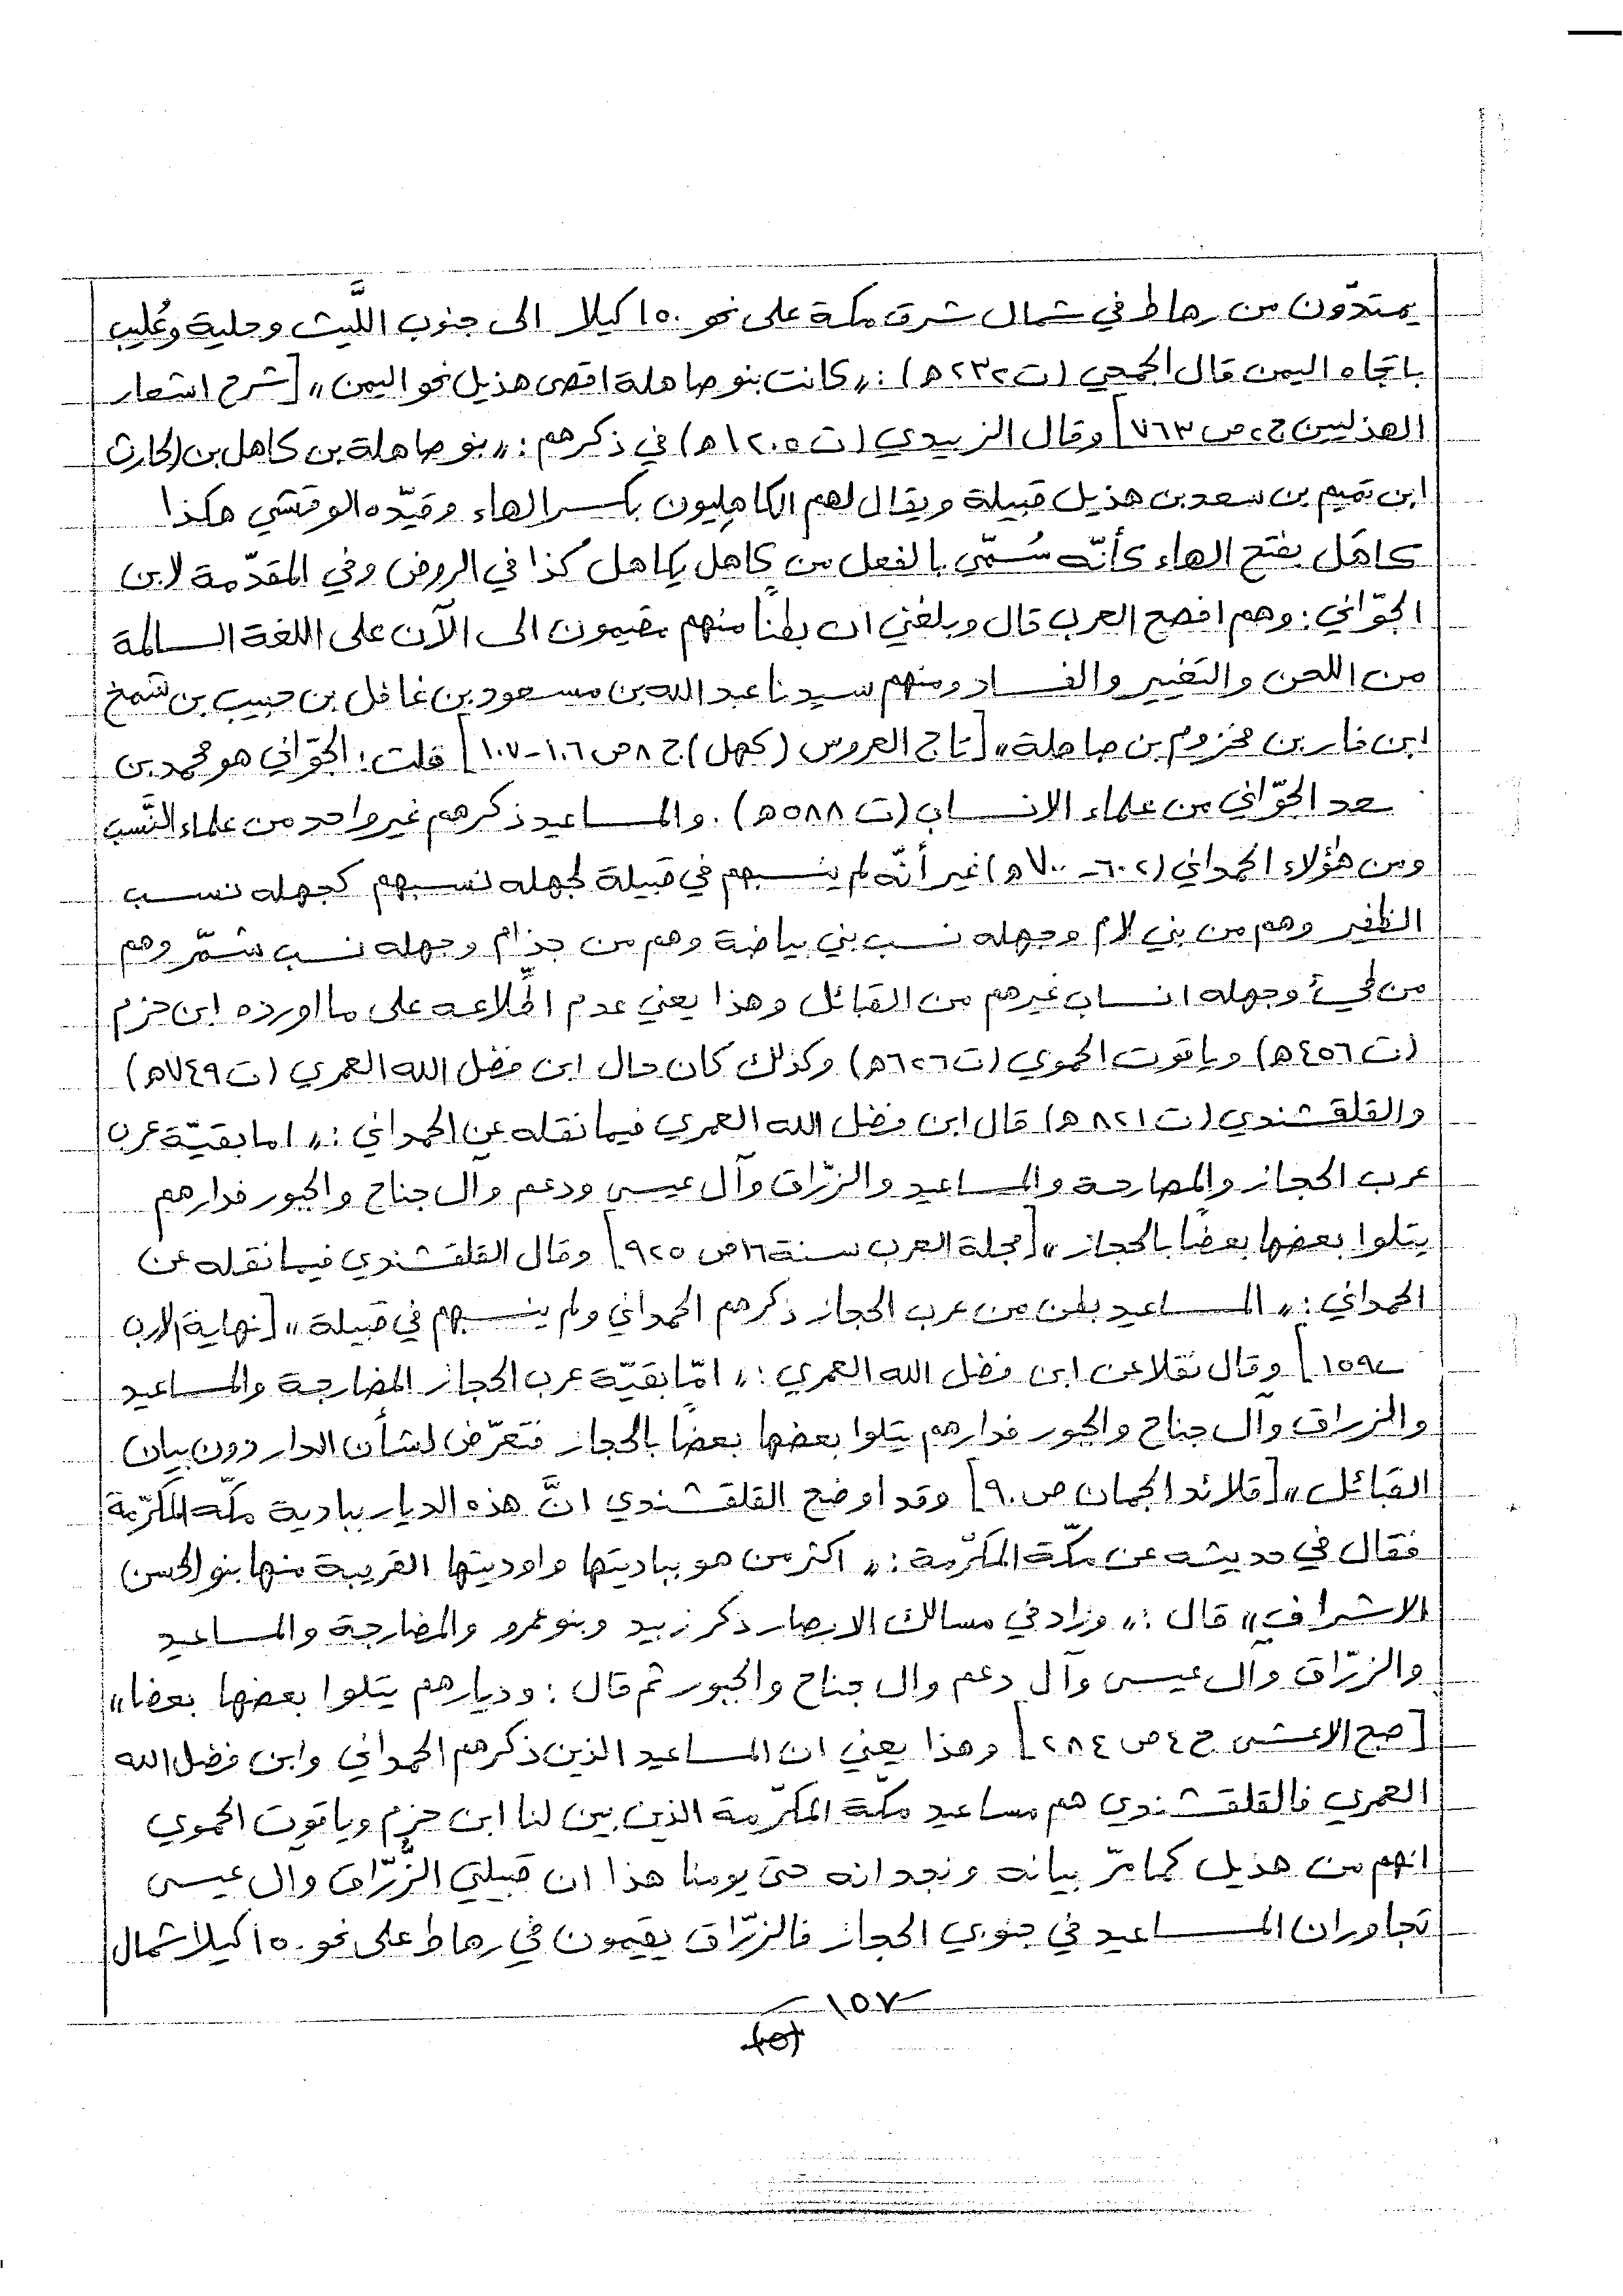 يمتدّون من رهاط في شمال شرق مكة على نحو ١٥٠ كيلا الى جنوب اللَّيث وحلية وعُليب
باتجاه اليمن قال الجمحي (ت ٢٣٢ هـ) : „ كانت بنو صاهلة اقصى هذيل نحو اليمن „ [شرح اشعار
الهذليين ج٢ ص ٧٦٣] وقال الزبيدي (ت ١٢٠٥ هـ) في ذكرهم : „ بنو صاهلة بن كاهل بن الحارث
ابن تميم بن سعد بن هذيل قبيلة ويقال لهم الكاهِليون بكسر الهاء وقيّده الوقشي هكذا
كاهَل بفتح الهاء كأنّه سُمّي بالفعل من كاهل يكاهل كذا في الروض وفي المقدّمة لابن
الجوّاني : وهم افصح العرب قال وبلغني ان بطناً منهم مقيمون الى الآن على اللغة السالمة
من اللحن والتغيير والفساد ومنهم سيدنا عبد الله بن مسعود بن غافل بن حبيب بن شمخ
ابن فار بن مخزوم بن صاهلة „ [تاج العروس (كهل) ج ٨ ص ١٠٦-١٠٧] قلت : الجوّاني هو محمد بن
سعد الجوّاني من علماء الانساب (ت ٥٨٨ هـ) . والمساعيد ذكرهم غير واحد من علماء النَّسب
ومن هؤلاء الحمداني (٦٠٢-٧٠٠ هـ) غير أنّه لم ينسبهم في قبيلة لجهله نسبهم كجهله نسب
الظفير وهم من بني لام وجهله نسب بني بياضة وهم من جذام وجهله نسب شمّر وهم
من طيّء وجهله انساب غيرهم من القبائل وهذا يعني عدم اطّلاعه على ما اورده ابن حزم
(ت ٤٥٦ هـ) وياقوت الحموي (ت ٦٢٦ هـ) وكذلك كان حال ابن فضل الله العمري (ت ٧٤٩ هـ)
والقلقشندي (ت ٨٢١ هـ) قال ابن فضل الله العمري فيما نقله عن الحمداني : „ اما بقيّة عرب
عرب الحجاز والمصارحة والمساعيد والزرّاق وآل عيسى ودعم وآل جناح والجبور فدارهم
يتلوا بعضها بعضًا بالحجاز „ [مجلة العرب سنة ١٦ ص ٩٢٥] وقال القلقشندي فيما نقله عن
الحمداني : „ المساعيد بطن من عرب الحجاز ذكرهم الحمداني ولم ينسبهم في قبيلة „ [نهاية الارب
ص ١٥٩] وقال نقلا عن ابن فضل الله العمري : „ امّا بقيّة عرب الحجاز المضارجة والمساعيد
والزراق وآل جناح والجبور فدارهم يتلوا بعضها بعضًا بالحجاز فتعرّض لشأن الدار دون بيان
القبائل „ [قلائد الجمان ص ٩٠] وقد اوضح القلقشندي انَّ هذه الديار ببادية مكّه المكرّمة
فقال في حديثه عن مكّة المكرّمة : „ اكثر من هو بباديتها واوديتها القريبة منها بنو الحسن
الاشراف „ قال : „ وزاد في مسالك الابصار ذكر زبيد وبنو عمرو والمضارجة والمساعيد
والزرّاق وآل عيسى وآل دعم وال جناح والجبور ثم قال : وديارهم يتلوا بعضها بعضا „
[صبح الاعشى ج ٤ ص ٢٨٤] وهذا يعني ان المساعيد الذين ذكرهم الحمداني وابن فضل الله
العمري فالقلقشندي هم مساعيد مكّة المكرّمة الذين بين لنا ابن حزم وياقوت الحموي
انهم من هذيل كما مرّ بيانه ونجد انه حتى يومنا هذا ان قبيلتي الزُّرّاق وال عيسى
تجاوران المساعيد في جنوبي الحجاز فالزرّاق يقيمون في رهاط على نحو ١٥٠ كيلا شمال
١٥٧